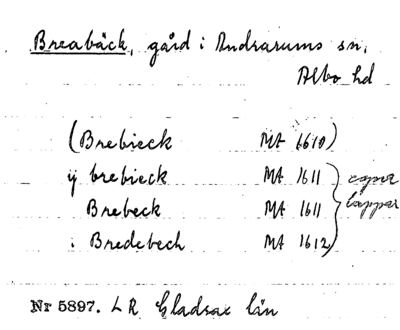 Breabäck, gård i Andrarums sn,
Albo hd
(Brebieck MA 1610)
ÿ brebieck MA 1611
Brebeck MA 1611
i Bredebech MA 1612
lappar
Nr 5897. LR Gladsax län